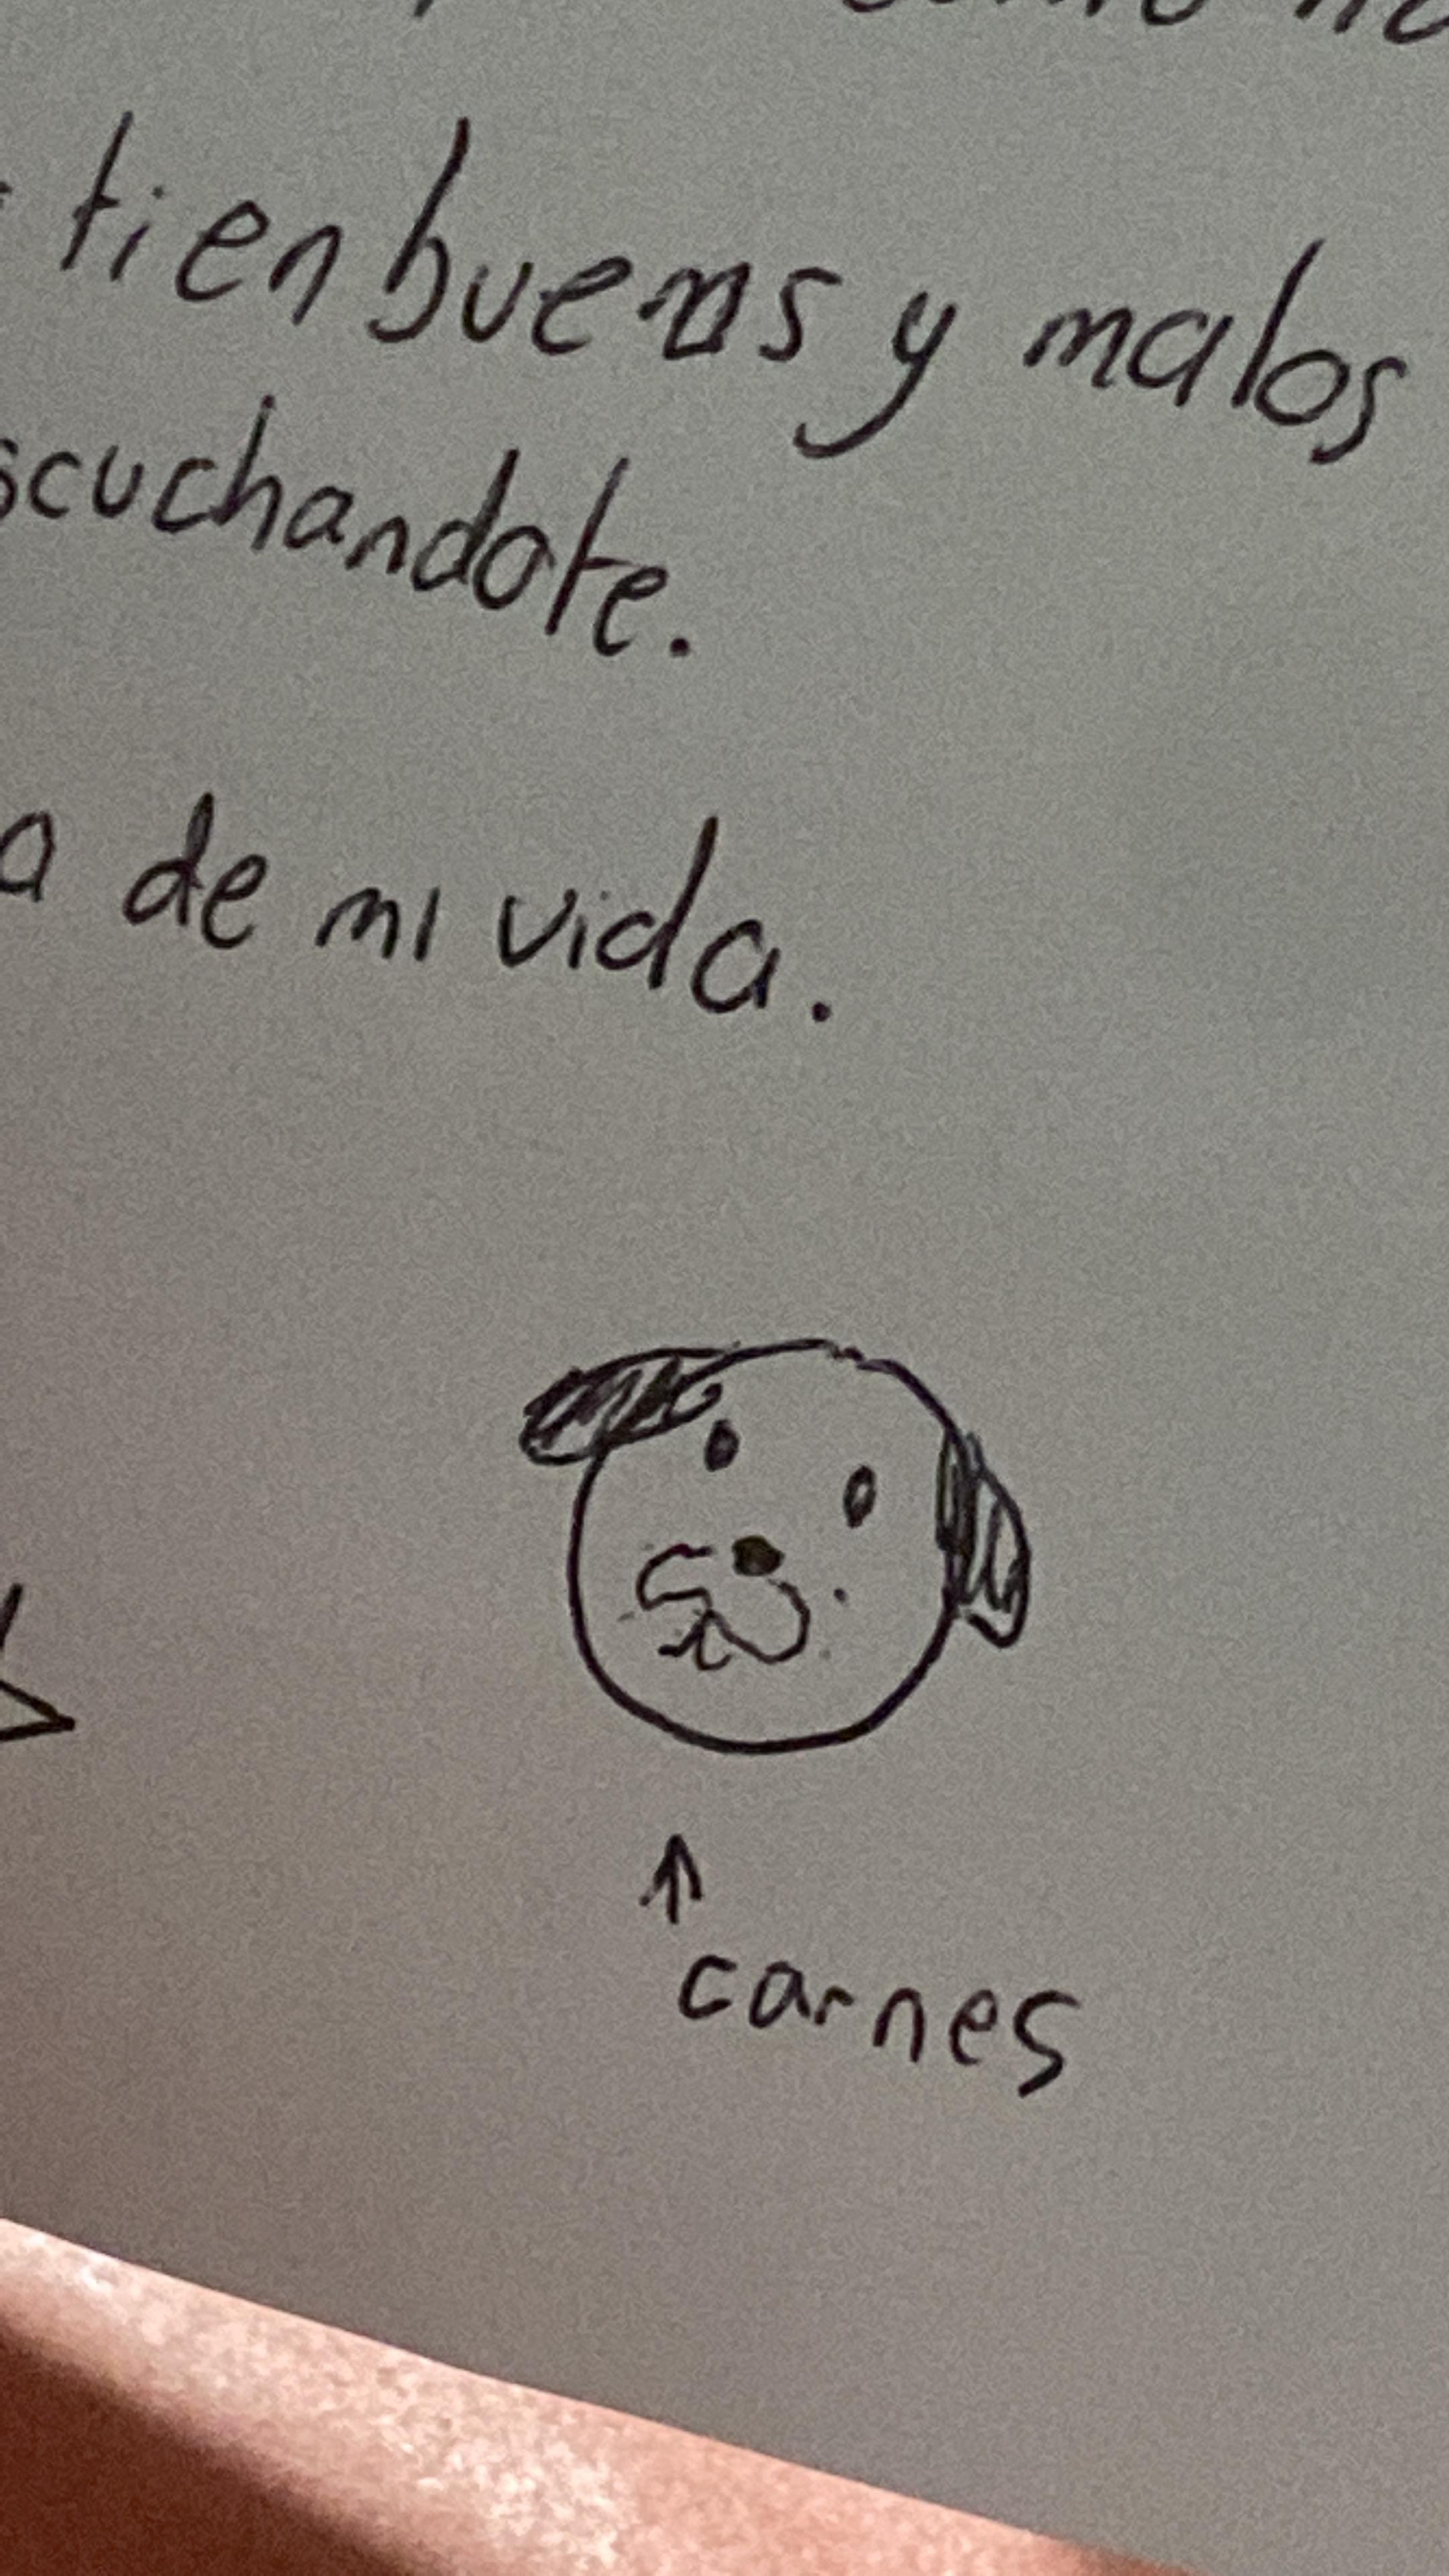 tien buenos y malos
scuchandote.
a de mi vida.
carnes